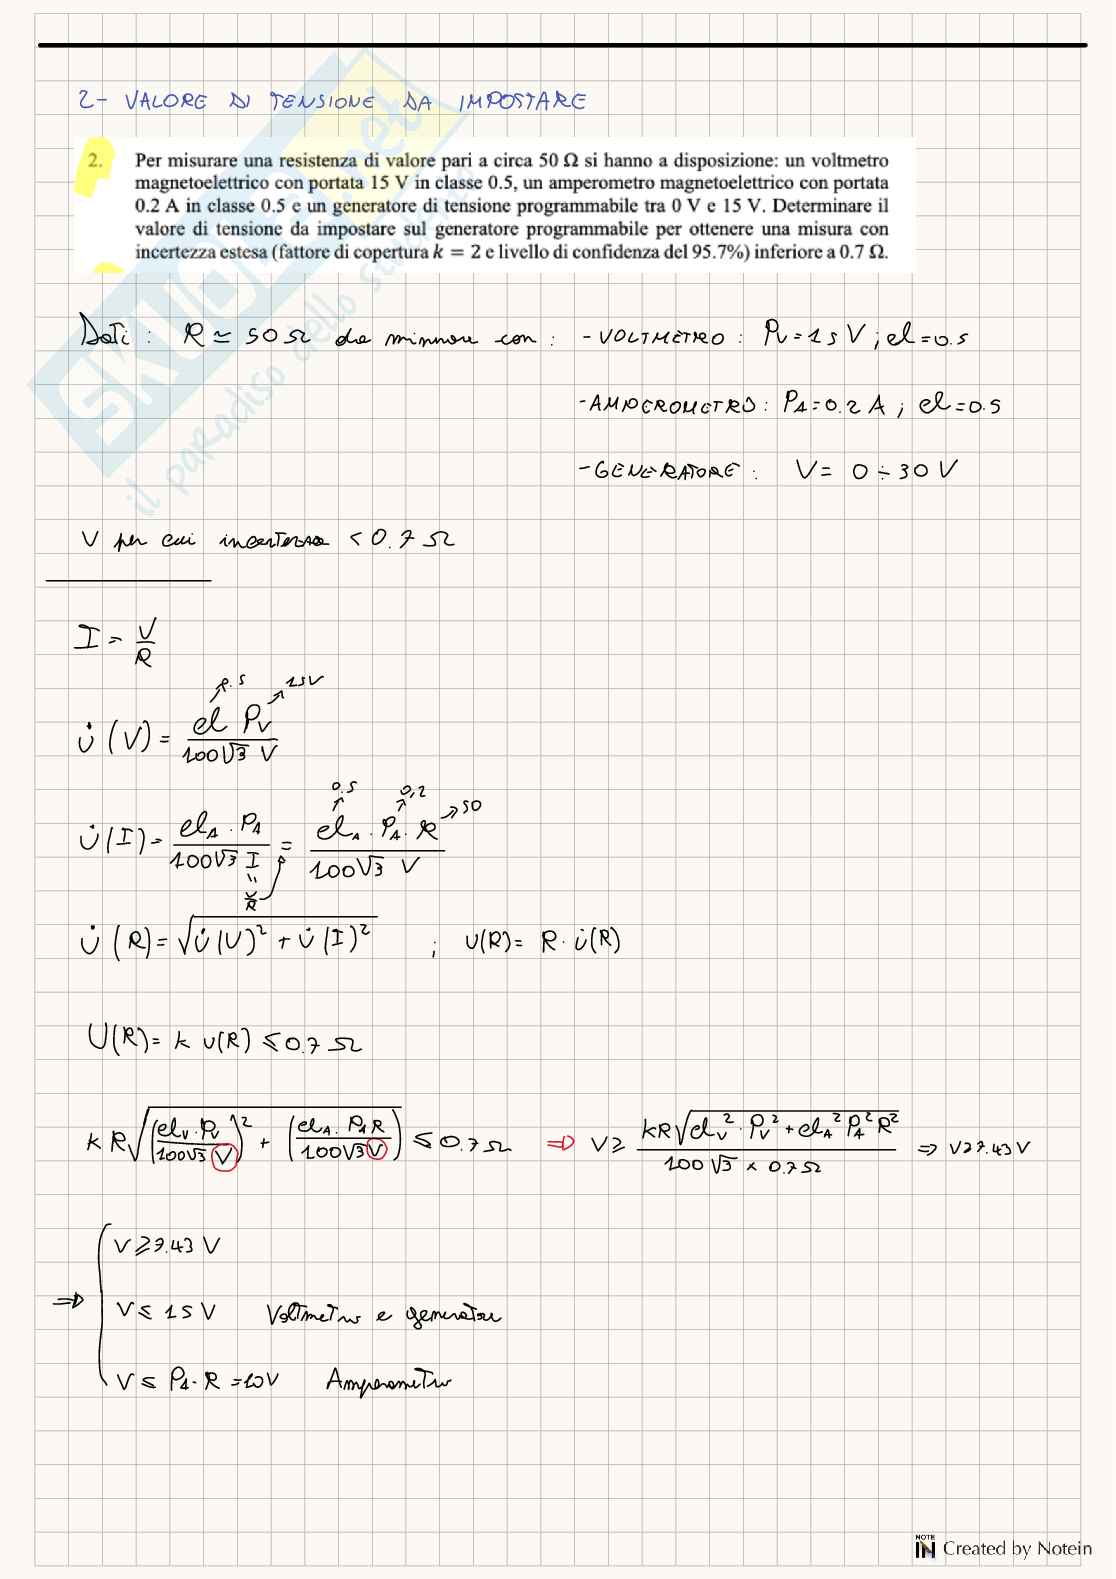 2- VALORE DI TENSIONE DA IMPOSTARE
2. Per misurare una resistenza di valore pari a circa 50 Ω si hanno a disposizione: un voltmetro
magnetoelettrico con portata 15 V in classe 0.5, un amperometro magnetoelettrico con portata
0.2 A in classe 0.5 e un generatore di tensione programmabile tra 0 V e 15 V. Determinare il
valore di tensione da impostare sul generatore programmabile per ottenere una misura con
incertezza estesa (fattore di copertura k = 2 e livello di confidenza del 95.7%) inferiore a 0.7 Ω.
Dati : R ≃ 50 Ω da misurare con : - VOLTMETRO : Pv = 15 V ; cl = 0.5
- AMPEROMETRO : PA = 0.2 A ; cl = 0.5
- GENERATORE : V = 0 ÷ 30 V
V per cui incertezza < 0.7 Ω
I = V/R
0.5 15V
u̇(V) = cl Pv / 100√3 V
0.5 0,2 50
u̇(I) = clA · PA / 100√3 I = clA · PA · R / 100√3 V
" V/R
u̇(R) = √u̇(V)² + u̇(I)² ; u(R) = R · u̇(R)
U(R) = k u(R) ≤ 0.7 Ω
k R √(clv · Pv / 100√3 V)² + (clA · PA R / 100√3 V) ≤ 0.7 Ω ⇒ V ≥ kR√clv² · Pv² + clA² PA² R² / 100 √3 × 0.7 Ω ⇒ V ≥ 7.43 V
V ≥ 7.43 V
⇒ V ≤ 15 V Voltmetro e generatore
V ≤ PA · R = 10V Amperometro
SKUOLA.net
il paradiso dello studente
NOTE IN Created by Notein